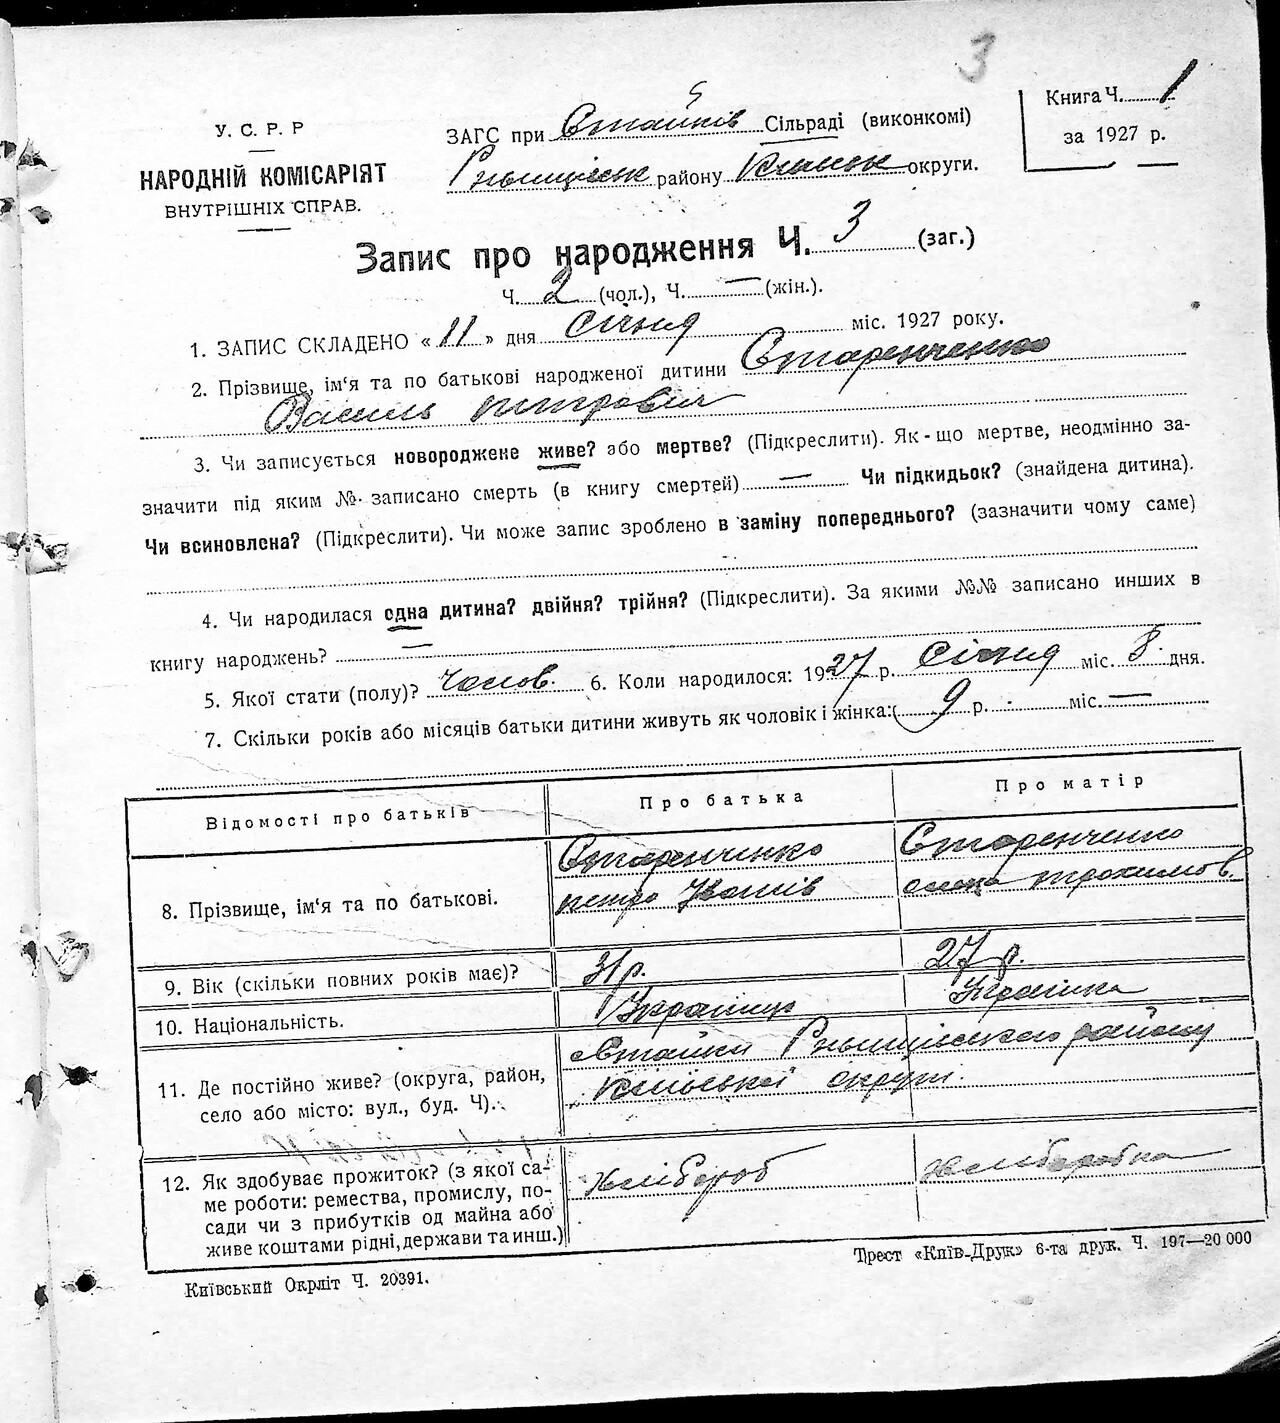 3
У. С. Р. Р
НАРОДНІЙ КОМІСАРІЯТ
ВНУТРІШНІХ СПРАВ.
ЗАГС при Стайків Сільраді (виконкомі)
Ржищівськ району Київськ округи.
Книга Ч. 1
за 1927 р.
Запис про народження Ч. 3 (заг.)
Ч. 2 (чол.), Ч. — (жін.).
1. ЗАПИС СКЛАДЕНО « 11 » дня січня міс. 1927 року.
2. Прізвище, ім‘я та по батькові народженої дитини Старенченко
Василь петрович
3. Чи записується новороджене живе? або мертве? (Підкреслити). Як-що мертве, неодмінно за-
значити під яким №. записано смерть (в книгу смертей) — Чи підкидьок? (знайдена дитина).
Чи всиновлена? (Підкреслити). Чи може запис зроблено в заміну попереднього? (зазначити чому саме)
4. Чи народилася одна дитина? двійня? трійня? (Підкреслити). За якими №№ записано инших в
книгу народжень? —
5. Якої стати (полу)? Чолов. 6. Коли народилося: 1927 р. Січня міс. 8 дня.
7. Скільки років або місяців батьки дитини живуть як чоловік і жінка: 9 р. міс. —
Відомості про батьків Про батька Про матір
8. Прізвище, ім‘я та по батькові. Старенченко петро Іванів Старенченко трохимов.
9. Вік (скільки повних років має)? 31 р. 27 р.
10. Національність. Українець Українка
11. Де постійно живе? (округа, район,
село або місто: вул., буд. Ч). Стайки Ржищівського району
Київської округи.
12. Як здобуває прожиток? (з якої са-
ме роботи: ремества, промислу, по-
сади чи з прибутків од майна або
живе коштами рідні, держави та инш.) хлібороб хліборобка
Київський Окрліт Ч. 20391.
Трест «Київ-Друк» 6-та друк. Ч. 197—20 000